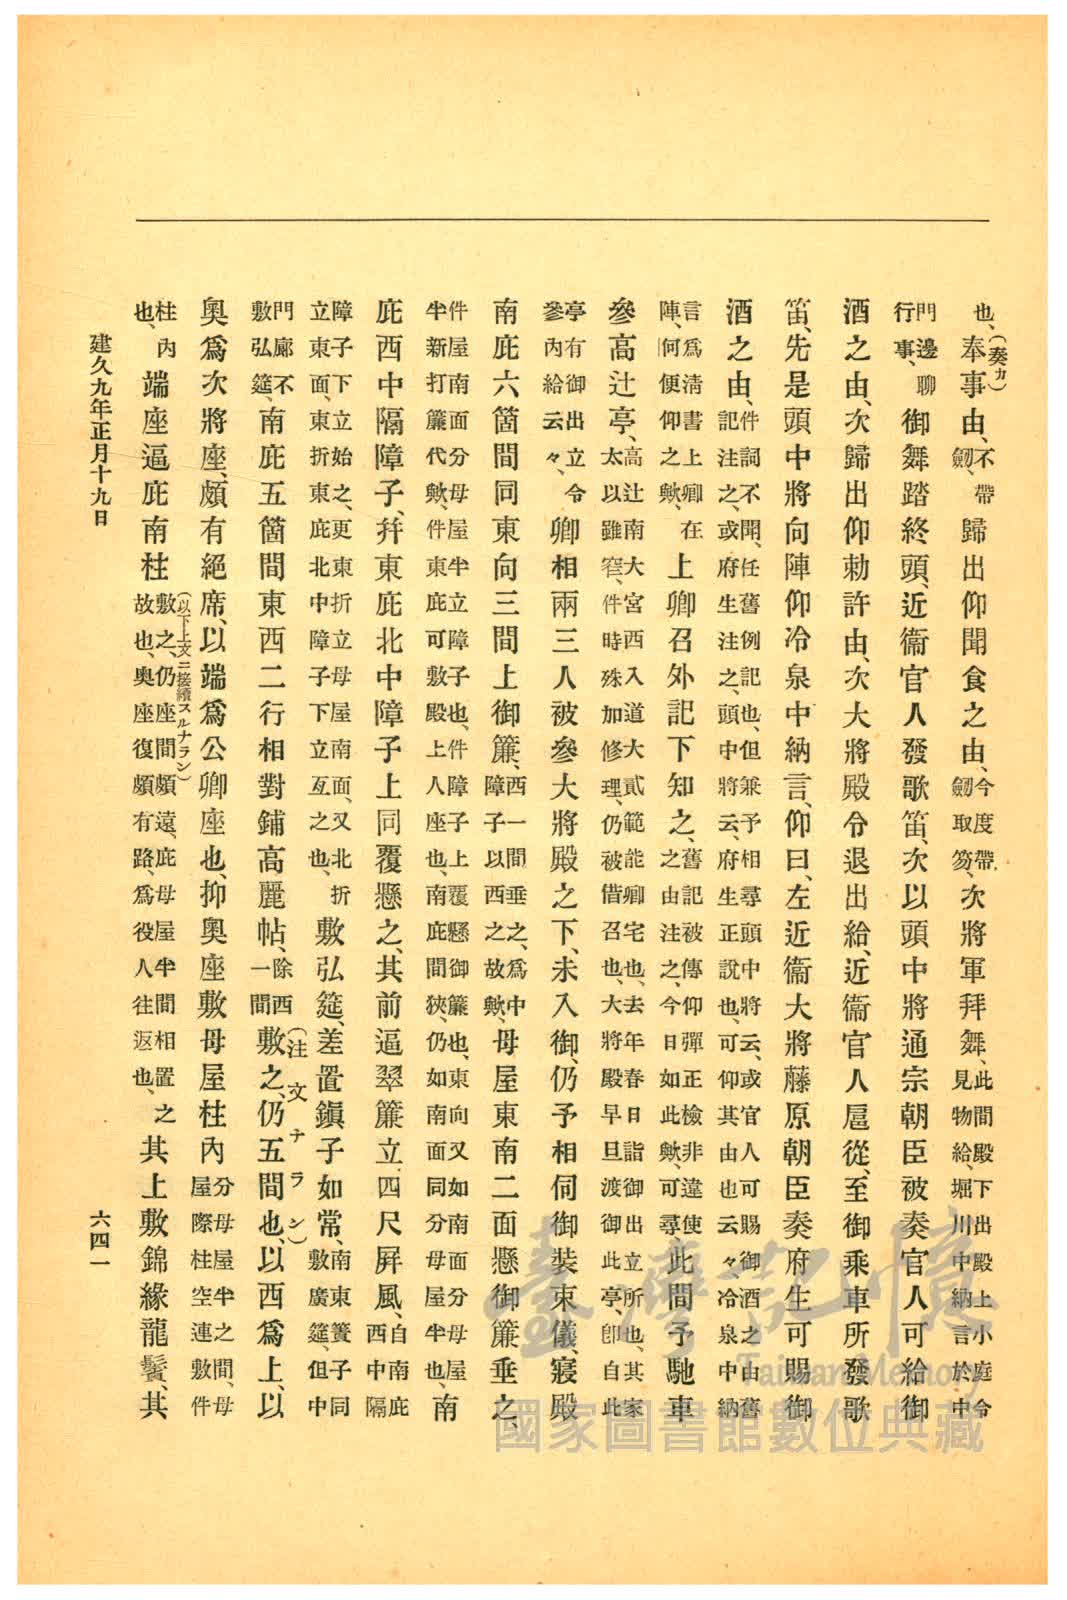 也、奉(奏カ)事由、不帶劔、歸出仰聞食之由、今度帶劔取笏、次將軍拜舞、此間殿下出殿上小庭令見物給、堀川中納言於中
門邊聊行事、御舞踏終頭、近衞官人發歌笛、次以頭中將通宗朝臣被奏官人可給御
酒之由、次歸出仰勅許由、次大將殿令退出給、近衞官人扈從、至御乘車所發歌
笛、先是頭中將向陣仰冷泉中納言、仰曰、左近衞大將藤原朝臣奏府生可賜御
酒之由、件詞不聞、任舊例記也、但兼予相尋頭中將云、或官人可賜御酒之由舊記注之、或府生注之、頭中將云、府生正說也、可仰其由也云々、冷泉中納
言爲淸書上卿在陣、何便仰之歟、上卿召外記下知之、舊記被傳仰彈正檢非違使之由注之、今日如此歟、可尋、此間予馳車
參高辻亭、高辻南大宮西入道大貳範能卿宅也、去年春日詣御出立所也、其家太以雖窄、件時殊加修理、仍被借召也、大將殿早旦渡御此亭、卽自此
亭有御出立令參內給云々、卿相兩三人被參大將殿之下、未入御、仍予相伺御裝束儀、寢殿
南庇六箇間同東向三間上御簾、西一間垂之、爲中障子以西之故歟、母屋東南二面懸御簾垂之、
件屋南面分母屋半立障子也、件障子上覆懸御簾也、東向又如南面分母屋半新打簾代歟、件東庇可敷殿上人座也、南庇間狹、仍如南面同分母屋半也、南
庇西中隔障子、幷東庇北中障子上同覆懸之、其前逼翠簾立四尺屛風、自南庇西中隔
障子下立始之、更東折立母屋南面、又北折立東面、東折東庇北中障子下立亙之也、敷弘筵、差置鎭子如常、南東簀子同敷廣筵、但中
門廊不敷弘筵、南庇五箇間東西二行相對鋪高麗帖、除西一間(注文ナラン)敷之、仍五間也、以西爲上、以
奧爲次將座、頗有絕席、以端爲公卿座也、抑奧座敷母屋柱內分母屋半之間、母屋際柱空連敷件
柱內也、端座逼庇南柱(以下上文ニ接續スルナラン)敷之、仍座間頗遠、庇母屋半間相置之故也、奧座復頗有路、爲役人往返也、其上敷錦緣龍鬢、其
建久九年正月十九日
六四一
臺灣記憶
Taiwan Memory
國家圖書館數位典藏